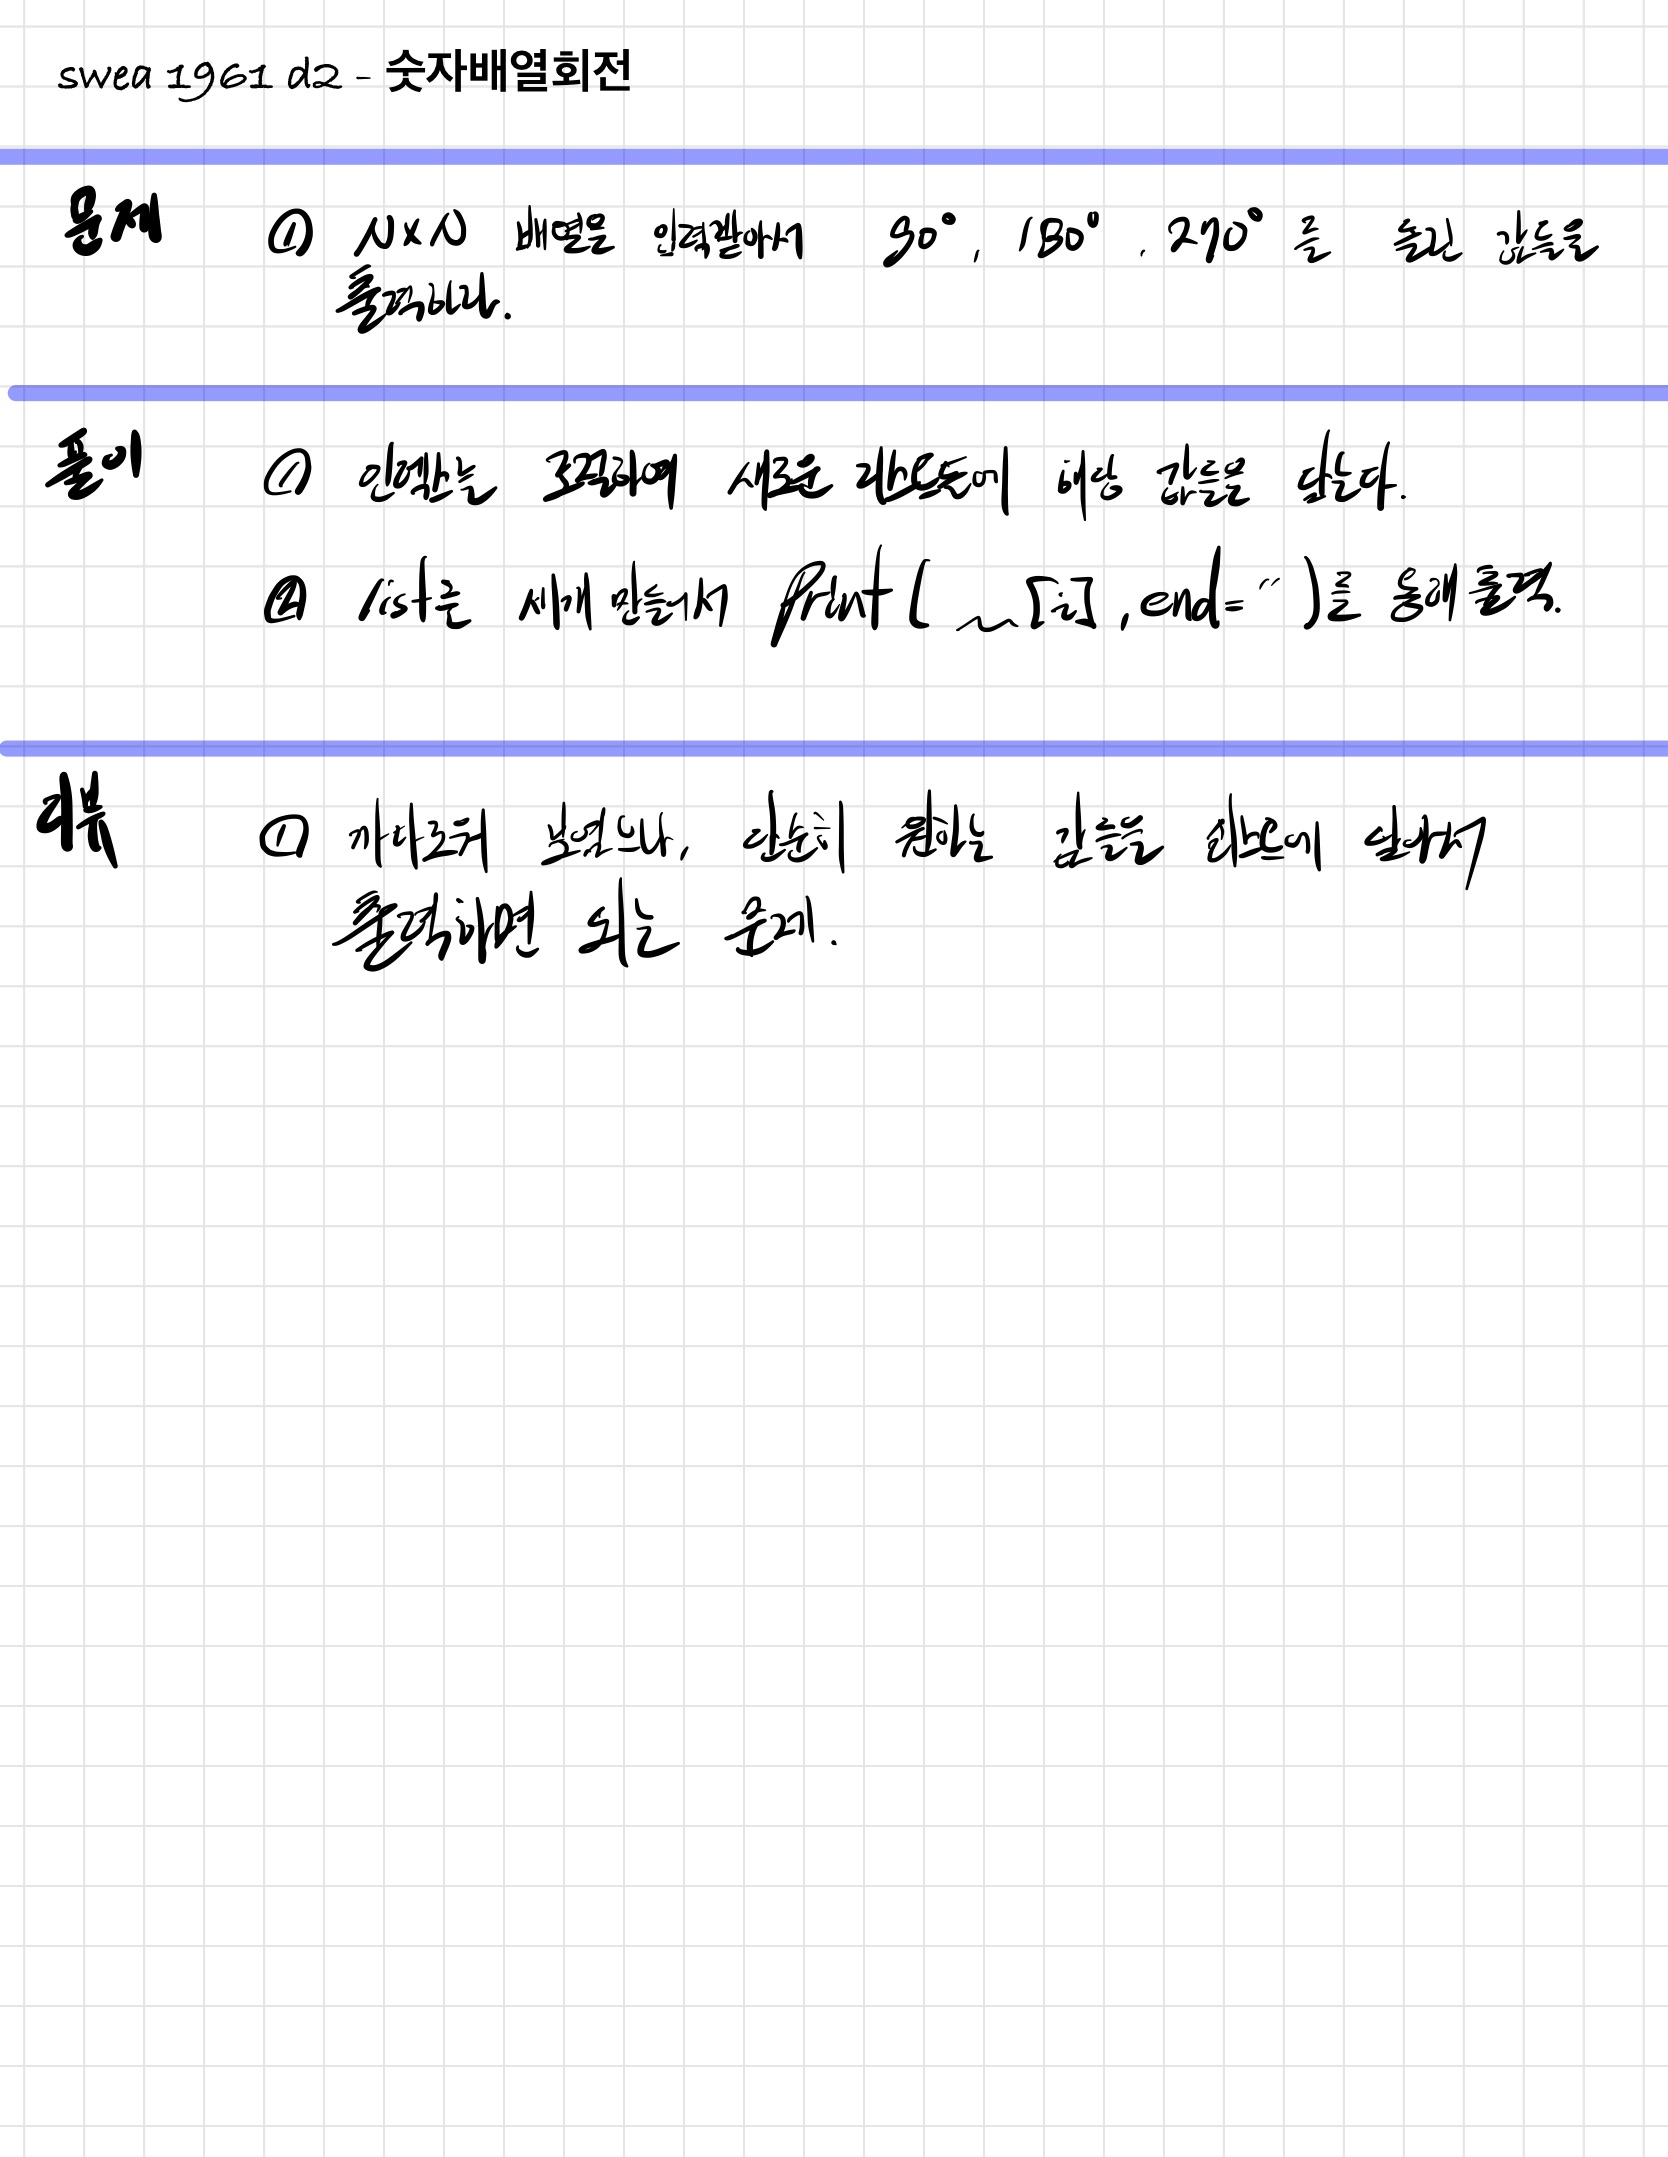 swea 1961 d2 - 숫자배열회전
문제 ① N×N 배열을 입력받아서 90°, 180°, 270°를 돌린 값들을
출력하라.
풀이 ① 인덱스를 조절하여 새로운 리스트들에 해당 값들을 담는다.
② list를 세개 만들어서 Print( ~[i], end=" ")를 통해 출력.
리뷰 ① 까다로워 보였으나, 단순히 원하는 값들을 리스트에 담아서
출력하면 되는 문제.